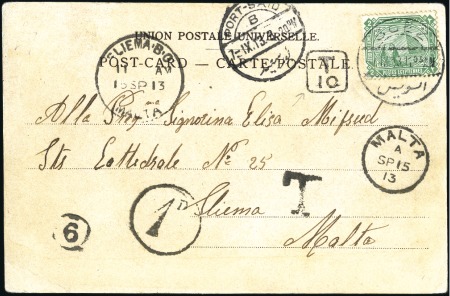 UNION POSTALE UNIVERSELLE.
POST-CARD — CARTE POSTALE.
PORT-SAID
B
7-IX.13
SLIEMA-B.O
11 A
15 SP 13
MALTA
T
10
السويس
MALTA
A
SP 15
13
Alla Sig. Signorina Elisa Mifsud
Sts Cathedrale No 25
Sliema
Malta
6
1D
T